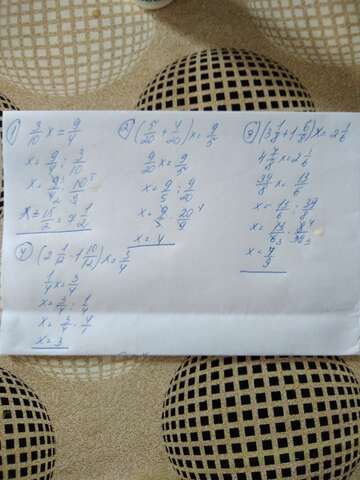 1) 3/10 x = 9/4
x = 9/4 : 3/10
x = 9/4 · 10/3
x = 15/2 =
2) (5/20 + 4/20) x = 9/5
9/20 x = 9/5
x = 9/5 : 9/20
x = 9/5 · 20/9
x = 4
3) (3 1/8 + 1 6/8) x = 2 1/6
4 7/8 x = 2 1/6
39/8 x = 13/6
x = 13/6 : 39/8
x = 13/6 · 8/39
4) (2 1/12 - 1 10/12) x = 3/4
1/4 x = 3/4
x = 3/4 : 1/4
x = 3/4 · 4/1
x = 3